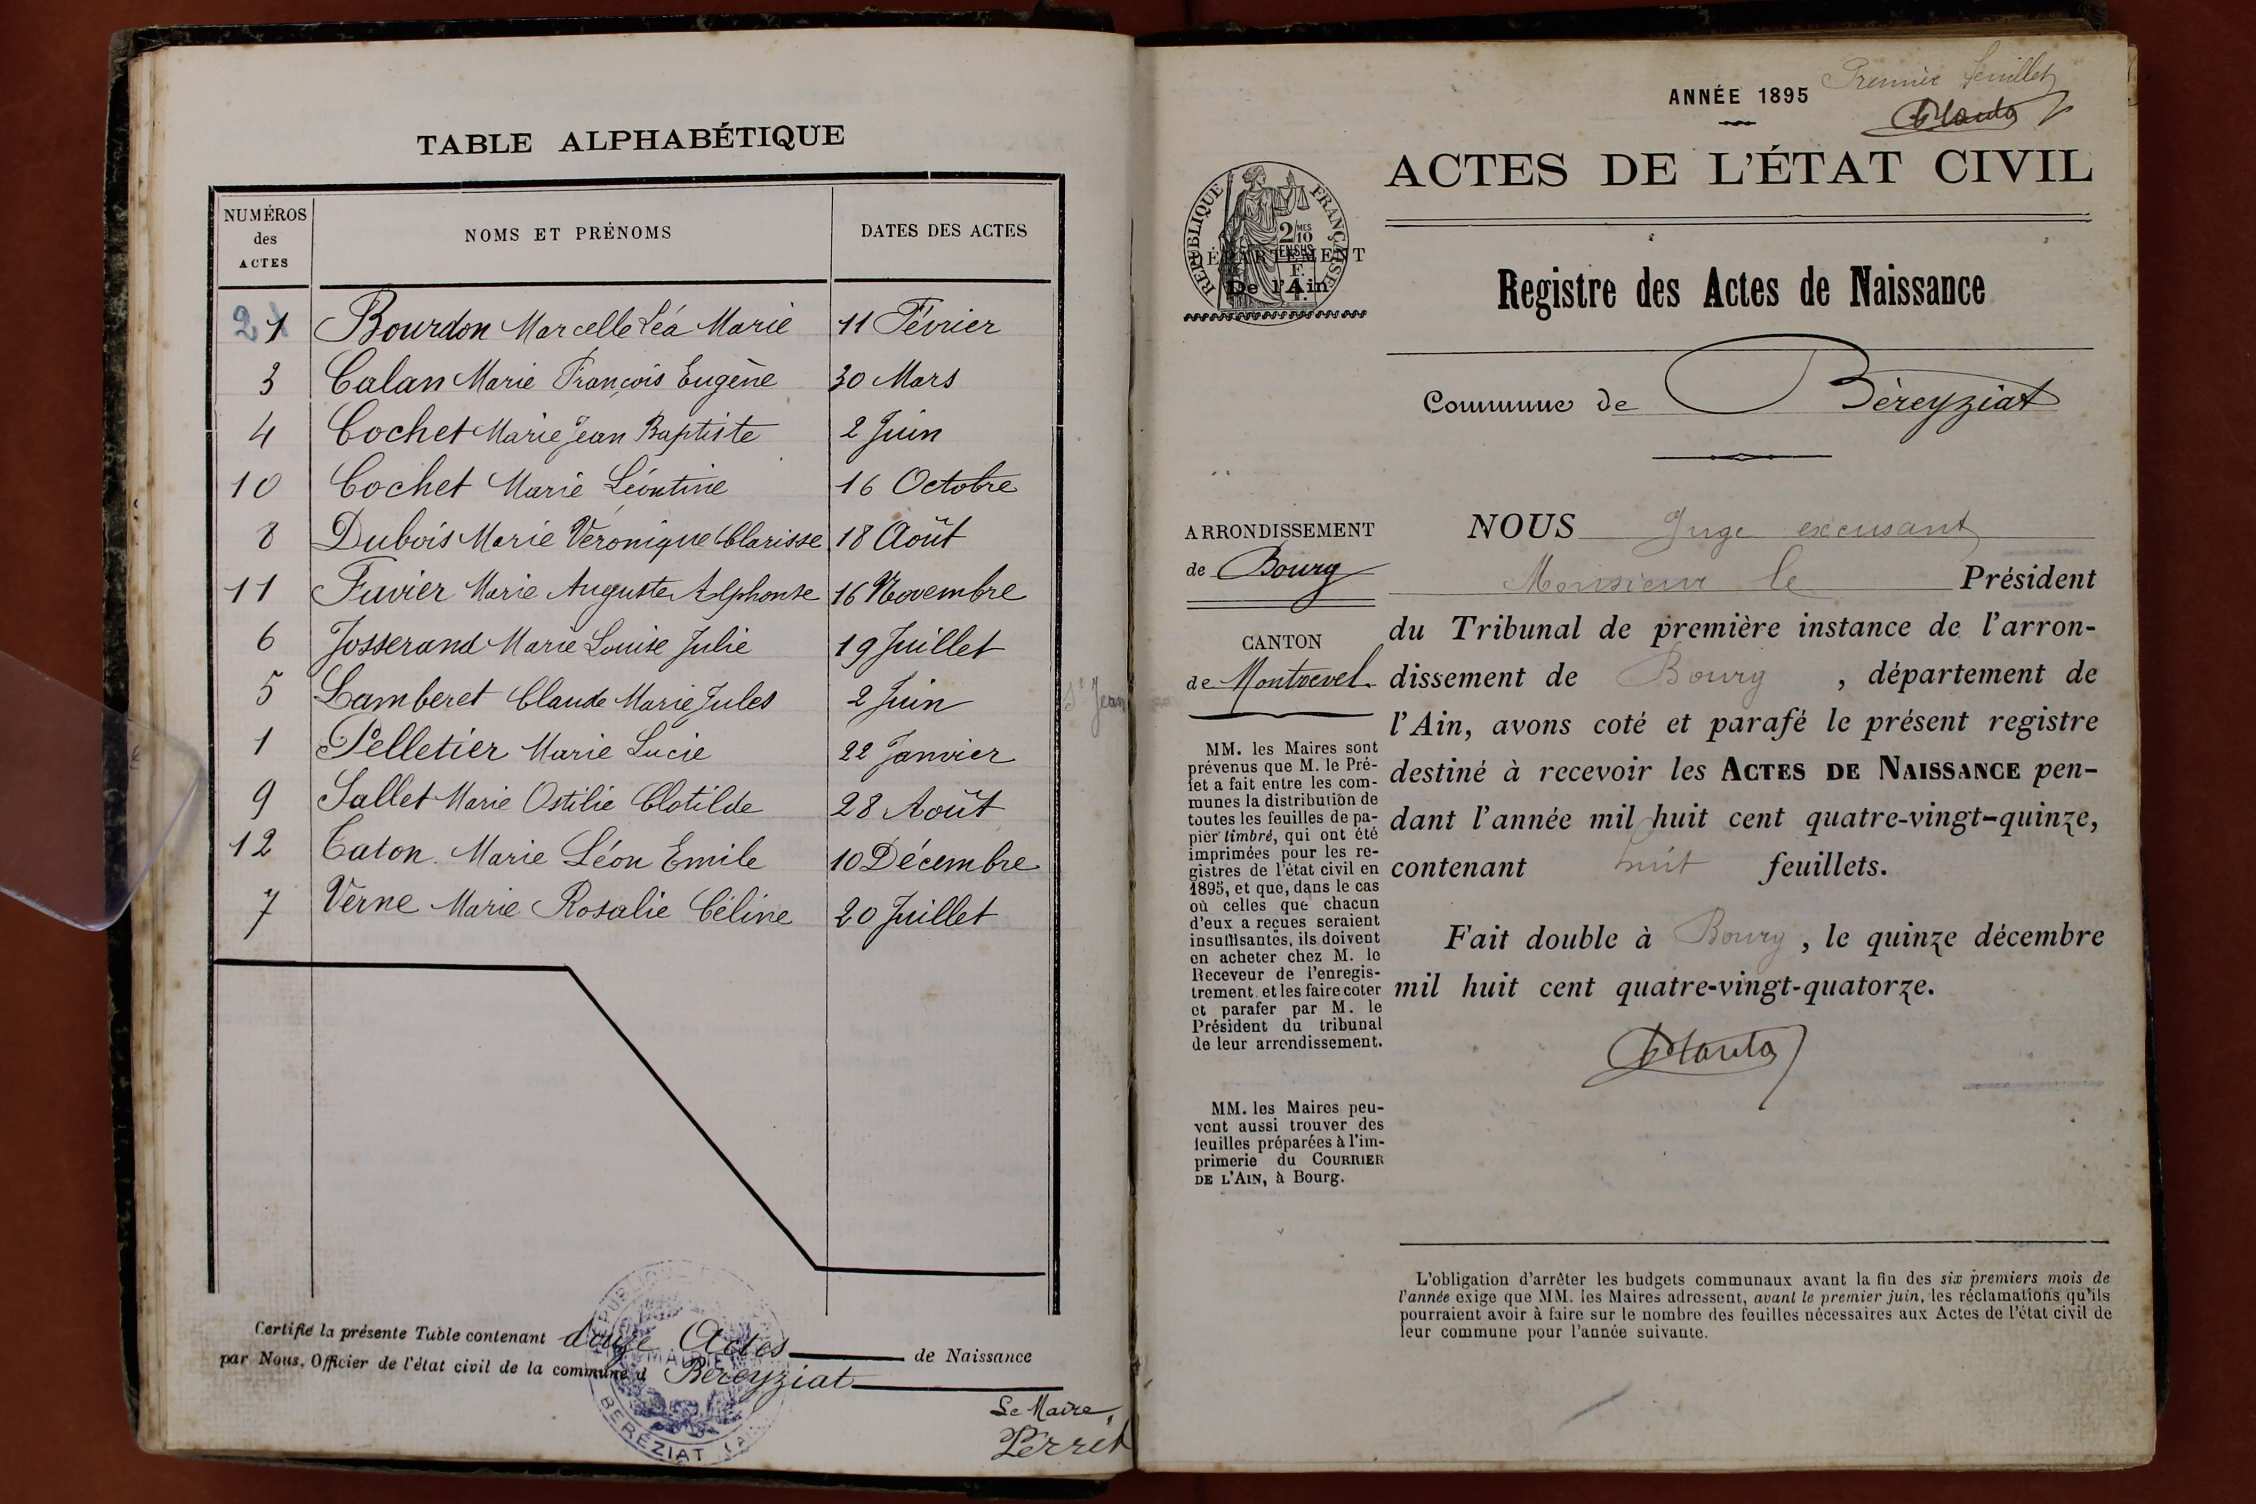 TABLE ALPHABÉTIQUE
NUMÉROS
des
ACTES
NOMS ET PRÉNOMS
DATES DES ACTES
2 1 Bourdon Marcelle Léa Marie 11 Février
3 Calan Marie François Eugène 30 Mars
4 Cochet Marie Jean Baptiste 2 Juin
10 Cochet Marie Léontine 16 Octobre
8 Dubois Marie Véronique Clarisse 18 Août
11 Favier Marie Auguste Alphonse 16 Novembre
6 Josserand Marie Louise Julie 19 Juillet
5 Lamberet Claude Marie Jules 2 Juin
1 Pelletier Marie Lucie 22 Janvier
9 Sallet Marie Ostilie Clotilde 28 Août
12 Caton Marie Léon Emile 10 Décembre
7 Verne Marie Rosalie Céline 20 Juillet
Certifié la présente Table contenant douze Actes de Naissance
par Nous, Officier de l'état civil de la commune d Béreyziat
Le Maire,
Perret
MAIRIE
BEREZIAT (AIN)
St Jean
Premier feuillet
ANNÉE 1895
ACTES DE L'ÉTAT CIVIL
RÉPUBLIQUE FRANÇAISE
2/10MES
EN SUS
DÉPARTEMENT
De l'Ain
Registre des Actes de Naissance
Commune de Béreyziat
ARRONDISSEMENT
de Bourg
CANTON
de Montrevel
MM. les Maires sont
prévenus que M. le Pré-
fet a fait entre les com-
munes la distribution de
toutes les feuilles de pa-
pier timbré, qui ont été
imprimées pour les re-
gistres de l'état civil en
1895, et que, dans le cas
où celles que chacun
d'eux a reçues seraient
insuffisantes, ils doivent
en acheter chez M. le
Receveur de l'enregis-
trement, et les faire coter
et parafer par M. le
Président du tribunal
de leur arrondissement.
MM. les Maires peu-
vent aussi trouver des
feuilles préparées à l'im-
primerie du COURRIER
DE L'AIN, à Bourg.
NOUS Juge excusant
Monsieur le Président
du Tribunal de première instance de l'arron-
dissement de Bourg, département de
l'Ain, avons coté et parafé le présent registre
destiné à recevoir les ACTES DE NAISSANCE pen-
dant l'année mil huit cent quatre-vingt-quinze,
contenant huit feuillets.
Fait double à Bourg, le quinze décembre
mil huit cent quatre-vingt-quatorze.
L'obligation d'arrêter les budgets communaux avant la fin des six premiers mois de
l'année exige que MM. les Maires adressent, avant le premier juin, les réclamations qu'ils
pourraient avoir à faire sur le nombre des feuilles nécessaires aux Actes de l'état civil de
leur commune pour l'année suivante.